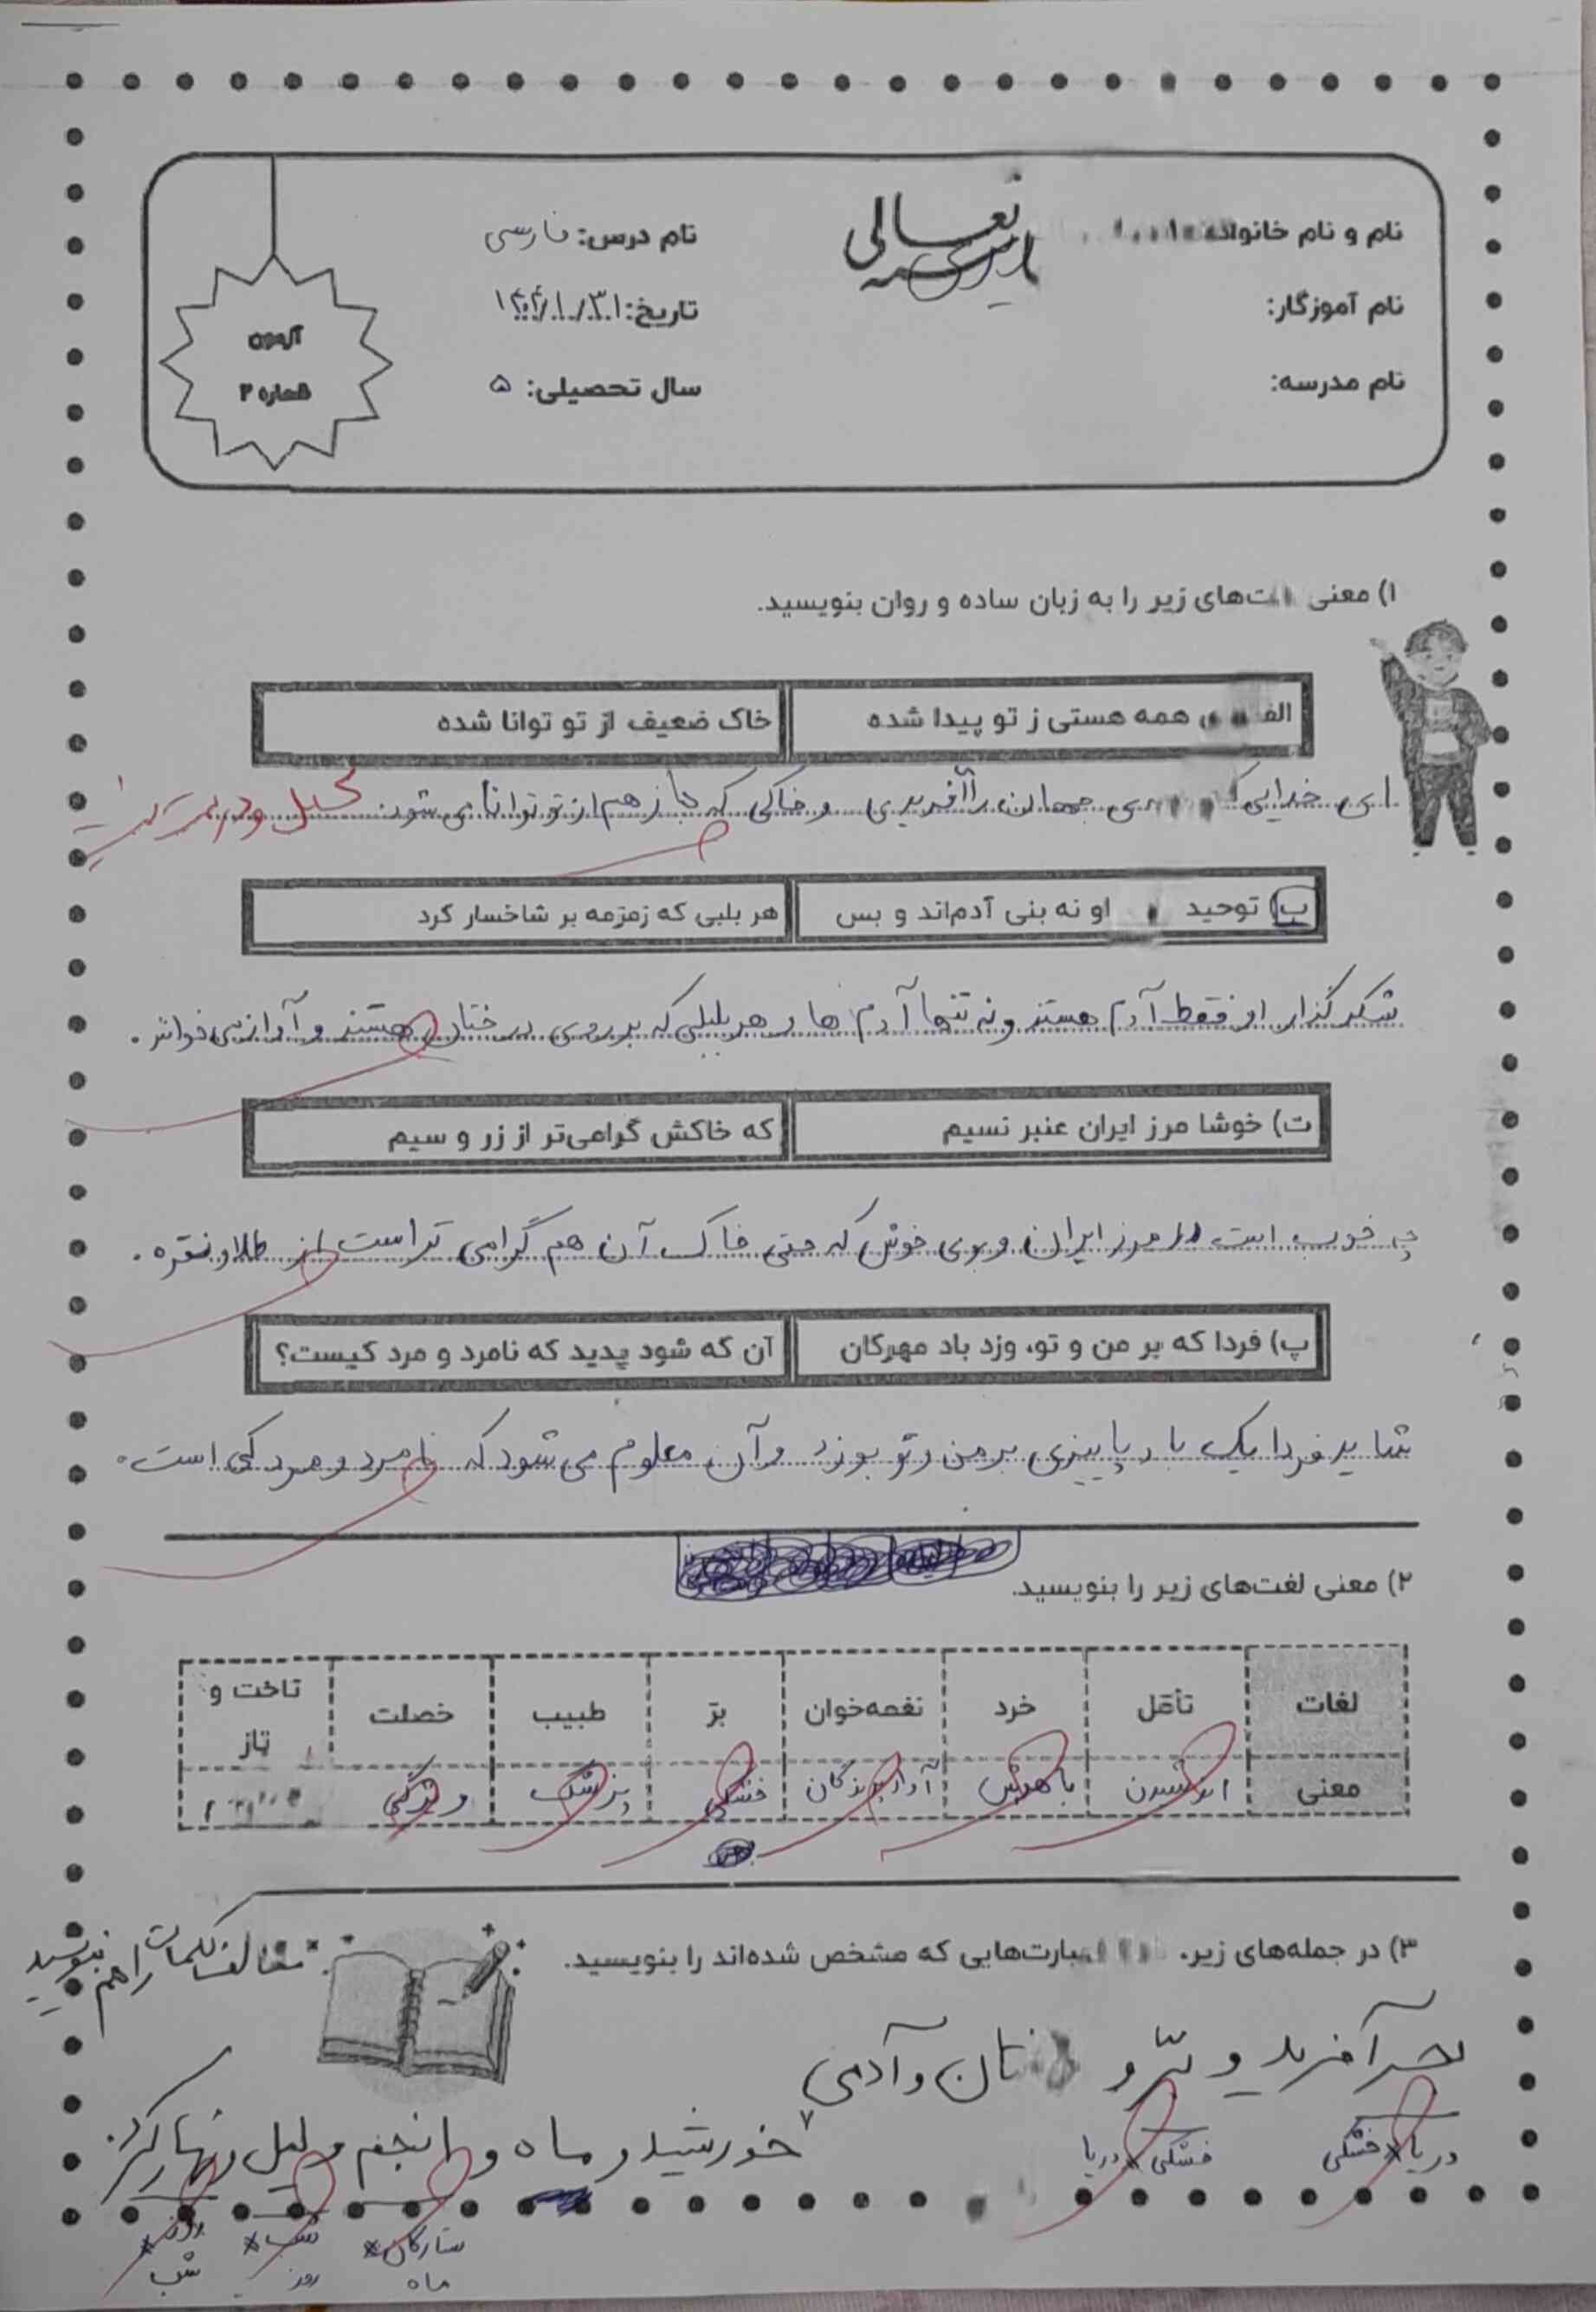 باسمه تعالی
نام و نام خانوادگی:
نام درس: فارسی
نام آموزگار:
تاریخ: ۱۴۰۴/۱/۳۱
نام مدرسه:
سال تحصیلی: ۵
آزمون
شماره ۲
۱) معنی های زیر را به زبان ساده و روان بنویسید.
الف همه هستی ز تو پیدا شده خاک ضعیف از تو توانا شده
ای خدایی که ی جهان را آفریدی و خاکی که باز هم از تو توانا می شود.
ب) توحید او نه بنی آدم‌اند و بس هر بلبی که زمزمه بر شاخسار کرد
شکر گذار او فقط آدم هستند و نه تنها آدم ها و هر بلبلی که بر روی درختان هستند و آواز می خوانند.
ت) خوشا مرز ایران عنبر نسیم که خاکش گرامی‌تر از زر و سیم
چه خوب است مرز ایران و بوی خوش که حتی خاک آن هم گرامی تر است از طلا و نقره.
پ) فردا که بر من و تو، وزد باد مهرگان آن که شود پدید که نامرد و مرد کیست؟
شاید فردا یک باد پاییزی بر من و تو بوزد و آن معلوم می شود که نامرد و مرد کی است.
۲) معنی لغت‌های زیر را بنویسید.
لغات تأمّل خرد نغمه‌خوان برّ طبیب خصلت تاخت و تاز
معنی اندیشیدن باهوش خشکی پزشک ویژگی
۳) در جمله‌های زیر، عبارت‌هایی که مشخص شده‌اند را بنویسید.
مخالف کلمات را هم بنویسید
بحر آفرید و برّ و درختان و آدمی
دریا × خشکی خشکی × دریا
خورشید و ماه و انجم و لیل و نهار کرد.
ستارگان × ماه شب × روز روز × شب